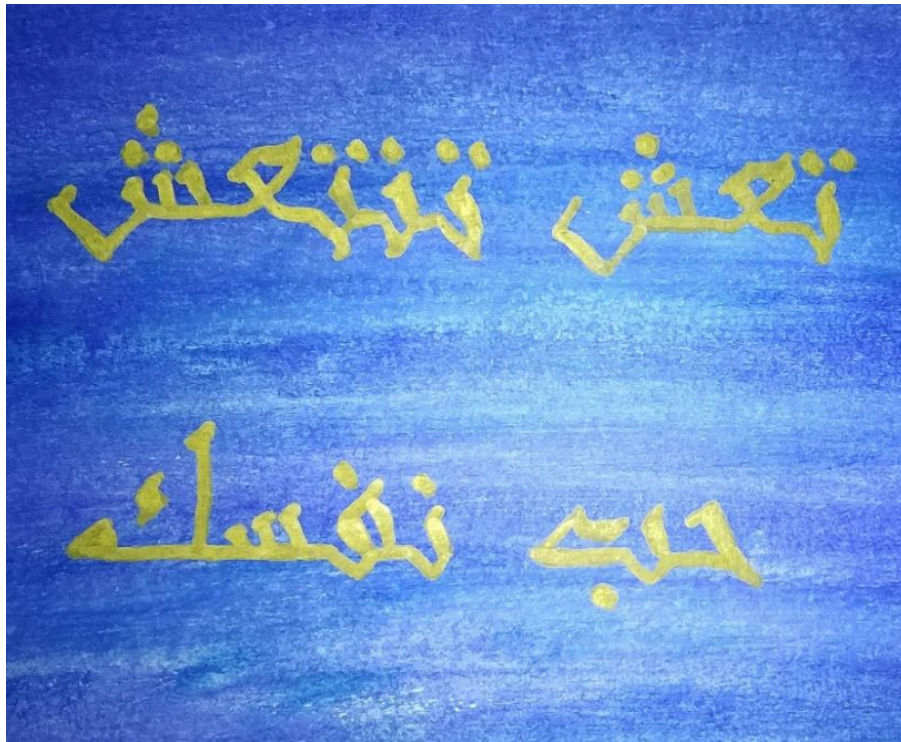 تعش تنتعش
حب نفسك